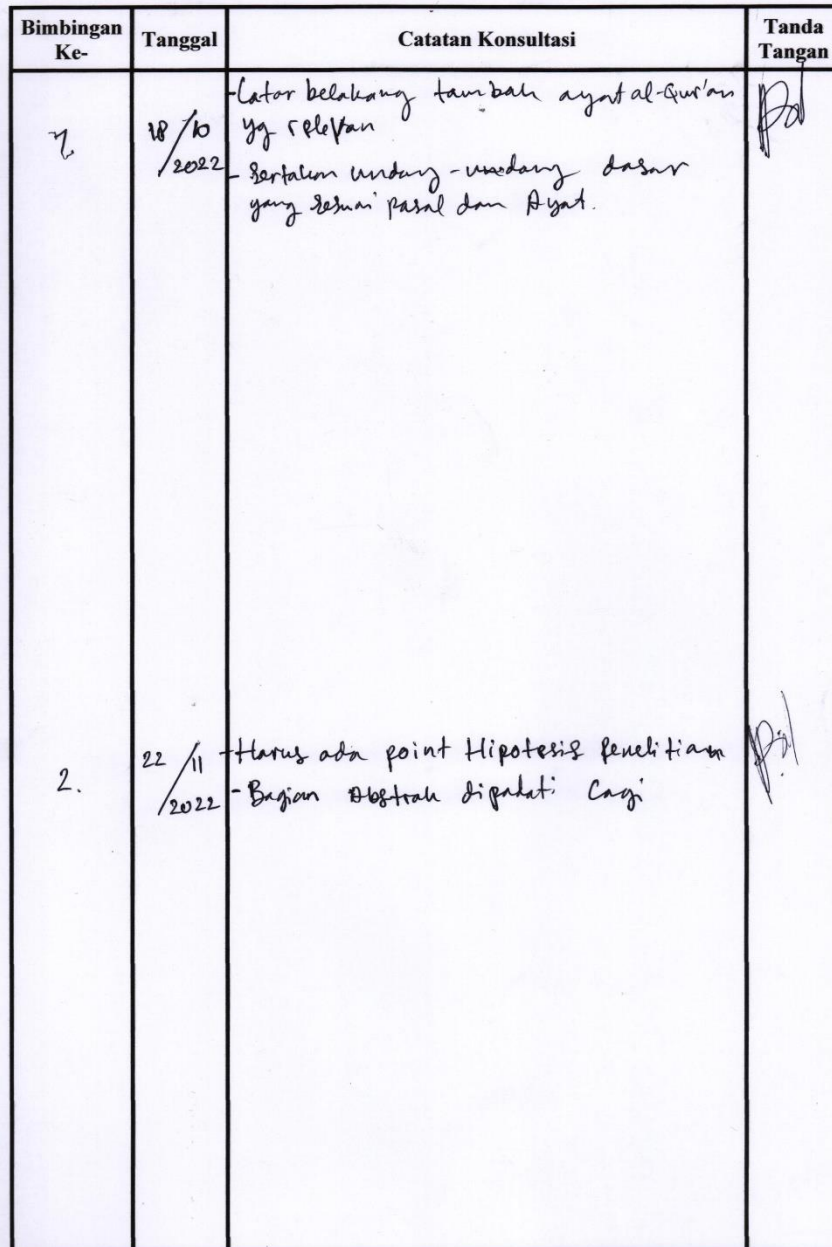 Bimbingan Ke-
Tanggal
Catatan Konsultasi
Tanda Tangan
18/10/2022
-Latar belakang tambah ayat al-Qur'an
yg relevan
- Sertakan undang-undang dasar
yang sesuai pasal dan Ayat.
2.
22/11/2022
-Harus ada point Hipotesis Penelitian
-Bagian Abstrak dipadati Lagi